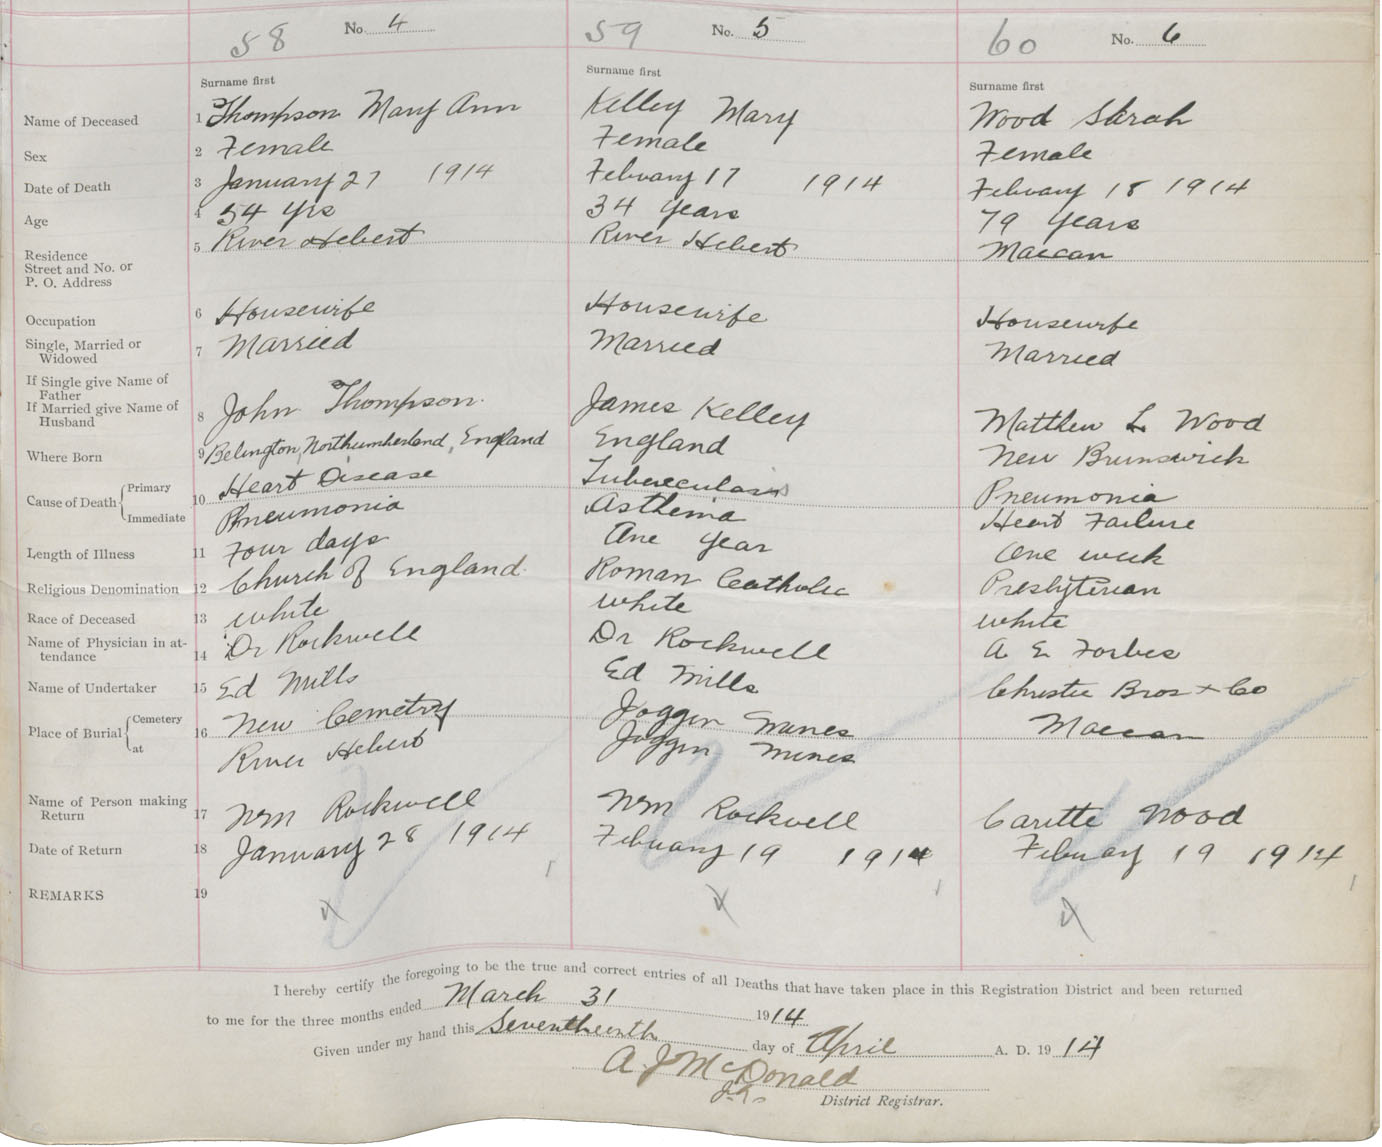 58 No. 4 59 No. 5 60 No. 6
Surname first Surname first Surname first
Name of Deceased 1 Thompson Mary Ann Kelley Mary Wood Sarah
Sex 2 Female Female Female
Date of Death 3 January 27 1914 February 17 1914 February 18 1914
Age 4 54 yrs 34 years 79 years
Residence 5 River Hebert River Hebert Maccan
Street and No. or
P. O. Address
Occupation 6 Housewife Housewife Housewife
Single, Married or 7 Married Married Married
Widowed
If Single give Name of
Father
If Married give Name of 8 John Thompson. James Kelley Matthew L Wood
Husband
Where Born 9 Belington, Northumberland, England England New Brunswick
Cause of Death Primary 10 Heart Disease Tuberculosis Pneumonia
Immediate Pneumonia Asthma Heart Failure
Length of Illness 11 Four days One year One week
Religious Denomination 12 Church of England. Roman Catholic Presbyterian
Race of Deceased 13 white white white
Name of Physician in at- 14 Dr Rockwell Dr Rockwell A E Forbes
tendance
Name of Undertaker 15 Ed Mills Ed Mills Christie Bros + Co
Place of Burial Cemetery 16 New Cemetry Joggin Mines Maccan
at River Hebert Joggin Mines
Name of Person making 17 Wm Rockwell Wm Rockwell Wood
Return
Date of Return 18 January 28 1914 February 19 1914 February 19 1914
REMARKS 19
I hereby certify the foregoing to be the true and correct entries of all Deaths that have taken place in this Registration District and been returned
to me for the three months ended March 31 1914
Given under my hand this Seventheenth day of April A. D. 1914
A J McDonald
District Registrar.